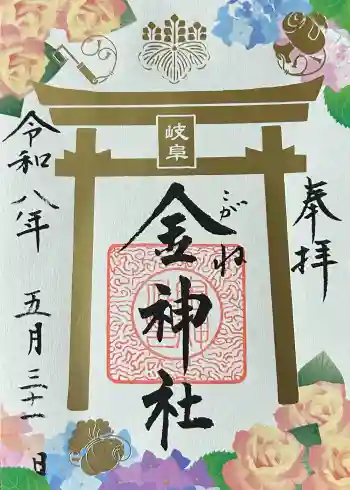 奉拝
岐阜
こがね
金神社
令和八年 五月三十一日